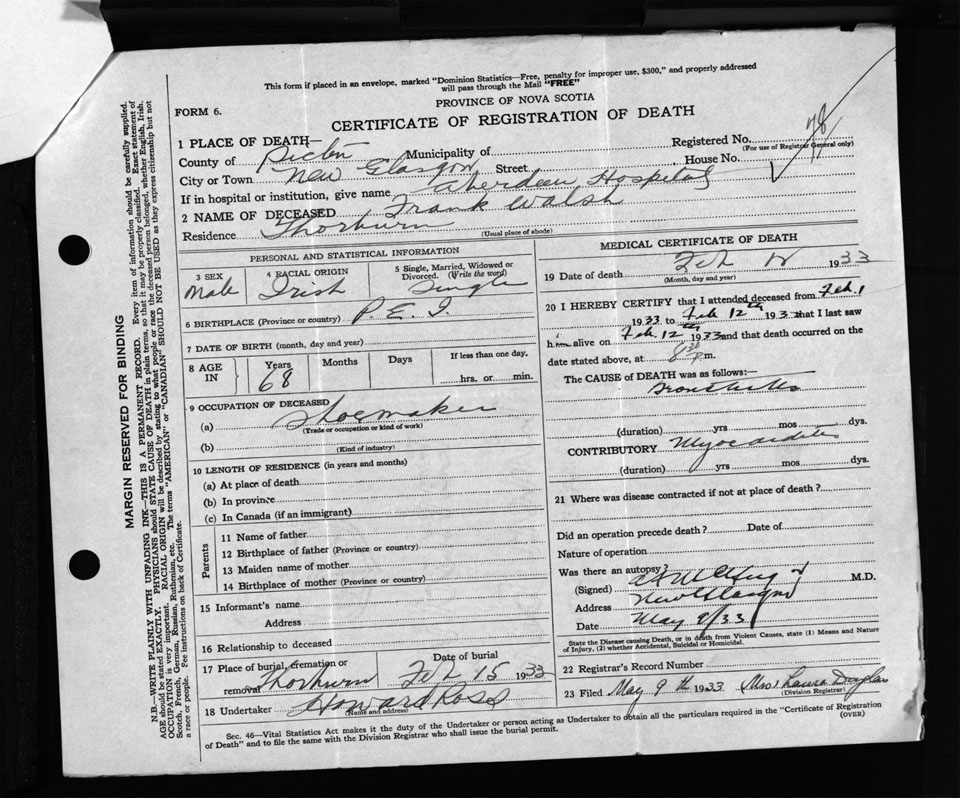 This form if placed in an envelope, marked "Dominion Statistics—Free, penalty for improper use, $300," and properly addressed
will pass through the Mail "FREE"
PROVINCE OF NOVA SCOTIA
FORM 6.
CERTIFICATE OF REGISTRATION OF DEATH
1 PLACE OF DEATH—
Registered No.
(For use of Registrar General only)
78
County of Pictou Municipality of
City or Town New Glasgow Street House No.
If in hospital or institution, give name Aberdeen Hospital
2 NAME OF DECEASED Frank Walsh
Residence Thorburn
(Usual place of abode)
PERSONAL AND STATISTICAL INFORMATION
3 SEX
Male
4 RACIAL ORIGIN
Irish
5 Single, Married, Widowed or
Divorced. (Write the word)
Single
6 BIRTHPLACE (Province or country) P. E. I.
7 DATE OF BIRTH (month, day and year)
8 AGE IN
Years
68
Months
Days
If less than one day,
hrs. or min.
9 OCCUPATION OF DECEASED
(a) Shoemaker
(Trade or occupation or kind of work)
(b)
(Kind of industry)
10 LENGTH OF RESIDENCE (in years and months)
(a) At place of death
(b) In province
(c) In Canada (if an immigrant)
Parents
11 Name of father
12 Birthplace of father (Province or country)
13 Maiden name of mother
14 Birthplace of mother (Province or country)
15 Informant's name
Address
16 Relationship to deceased
17 Place of burial, cremation or
removal Thorburn
Date of burial
Feb 15 1933
18 Undertaker Howard Ross
(Name and address)
MEDICAL CERTIFICATE OF DEATH
19 Date of death Feb 12 1933
(Month, day and year)
20 I HEREBY CERTIFY that I attended deceased from Feb. 1
1933 to Feb 12th 1933 that I last saw
him alive on Feb. 12th 1933 and that death occurred on the
date stated above, at 8 30 p.m.
The CAUSE OF DEATH was as follows:—
Bronchitis
(duration) yrs mos dys.
CONTRIBUTORY Myocarditis
(duration) yrs mos dys.
21 Where was disease contracted if not at place of death?
Did an operation precede death? Date of
Nature of operation
Was there an autopsy?
(Signed) M.D.
Address New Glasgow
Date May 9/33
State the Disease causing Death, or in death from Violent Causes, state (1) Means and Nature
of Injury, (2) whether Accidental, Suicidal or Homicidal.
22 Registrar's Record Number
23 Filed May 9th 1933 Miss Laura Douglas
(Division Registrar)
Sec. 46—Vital Statistics Act makes it the duty of the Undertaker or person acting as Undertaker to obtain all the particulars required in the "Certificate of Registration
of Death" and to file the same with the Division Registrar who shall issue the burial permit.
(OVER)
MARGIN RESERVED FOR BINDING
N.B.—WRITE PLAINLY WITH UNFADING INK—THIS IS A PERMANENT RECORD. Every item of information should be carefully supplied.
AGE should be stated EXACTLY. PHYSICIANS should STATE CAUSE OF DEATH in plain terms, so that it may be properly classified. Exact statement of
OCCUPATION is very important. RACIAL ORIGIN will be described by stating to what people or race the deceased person belonged, whether English, Irish,
Scotch, French, German, Russian, Ruthenian, etc. The terms "AMERICAN" or "CANADIAN" SHOULD NOT BE USED as they express citizenship but not
a race or people. Fee instructions on back of Certificate.